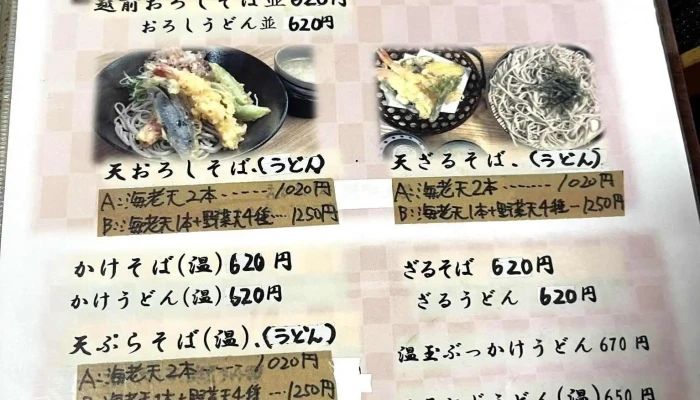 越前おろしそば並620円
おろしうどん並 620円
天おろしそば.(うどん)
A:海老天2本------1020円
B:海老天1本+野菜天4種---1250円
天ざるそば.(うどん)
A:海老天2本------1020円
B:海老天1本+野菜天4種--1250円
かけそば(温)620円
かけうどん(温)620円
ざるそば 620円
ざるうどん 620円
天ぷらそば(温).(うどん)
A:海老天2本-----1020円
B:海老天1本+野菜天4種---1250円
温玉ぶっかけうどん670円
うどん(温)650円